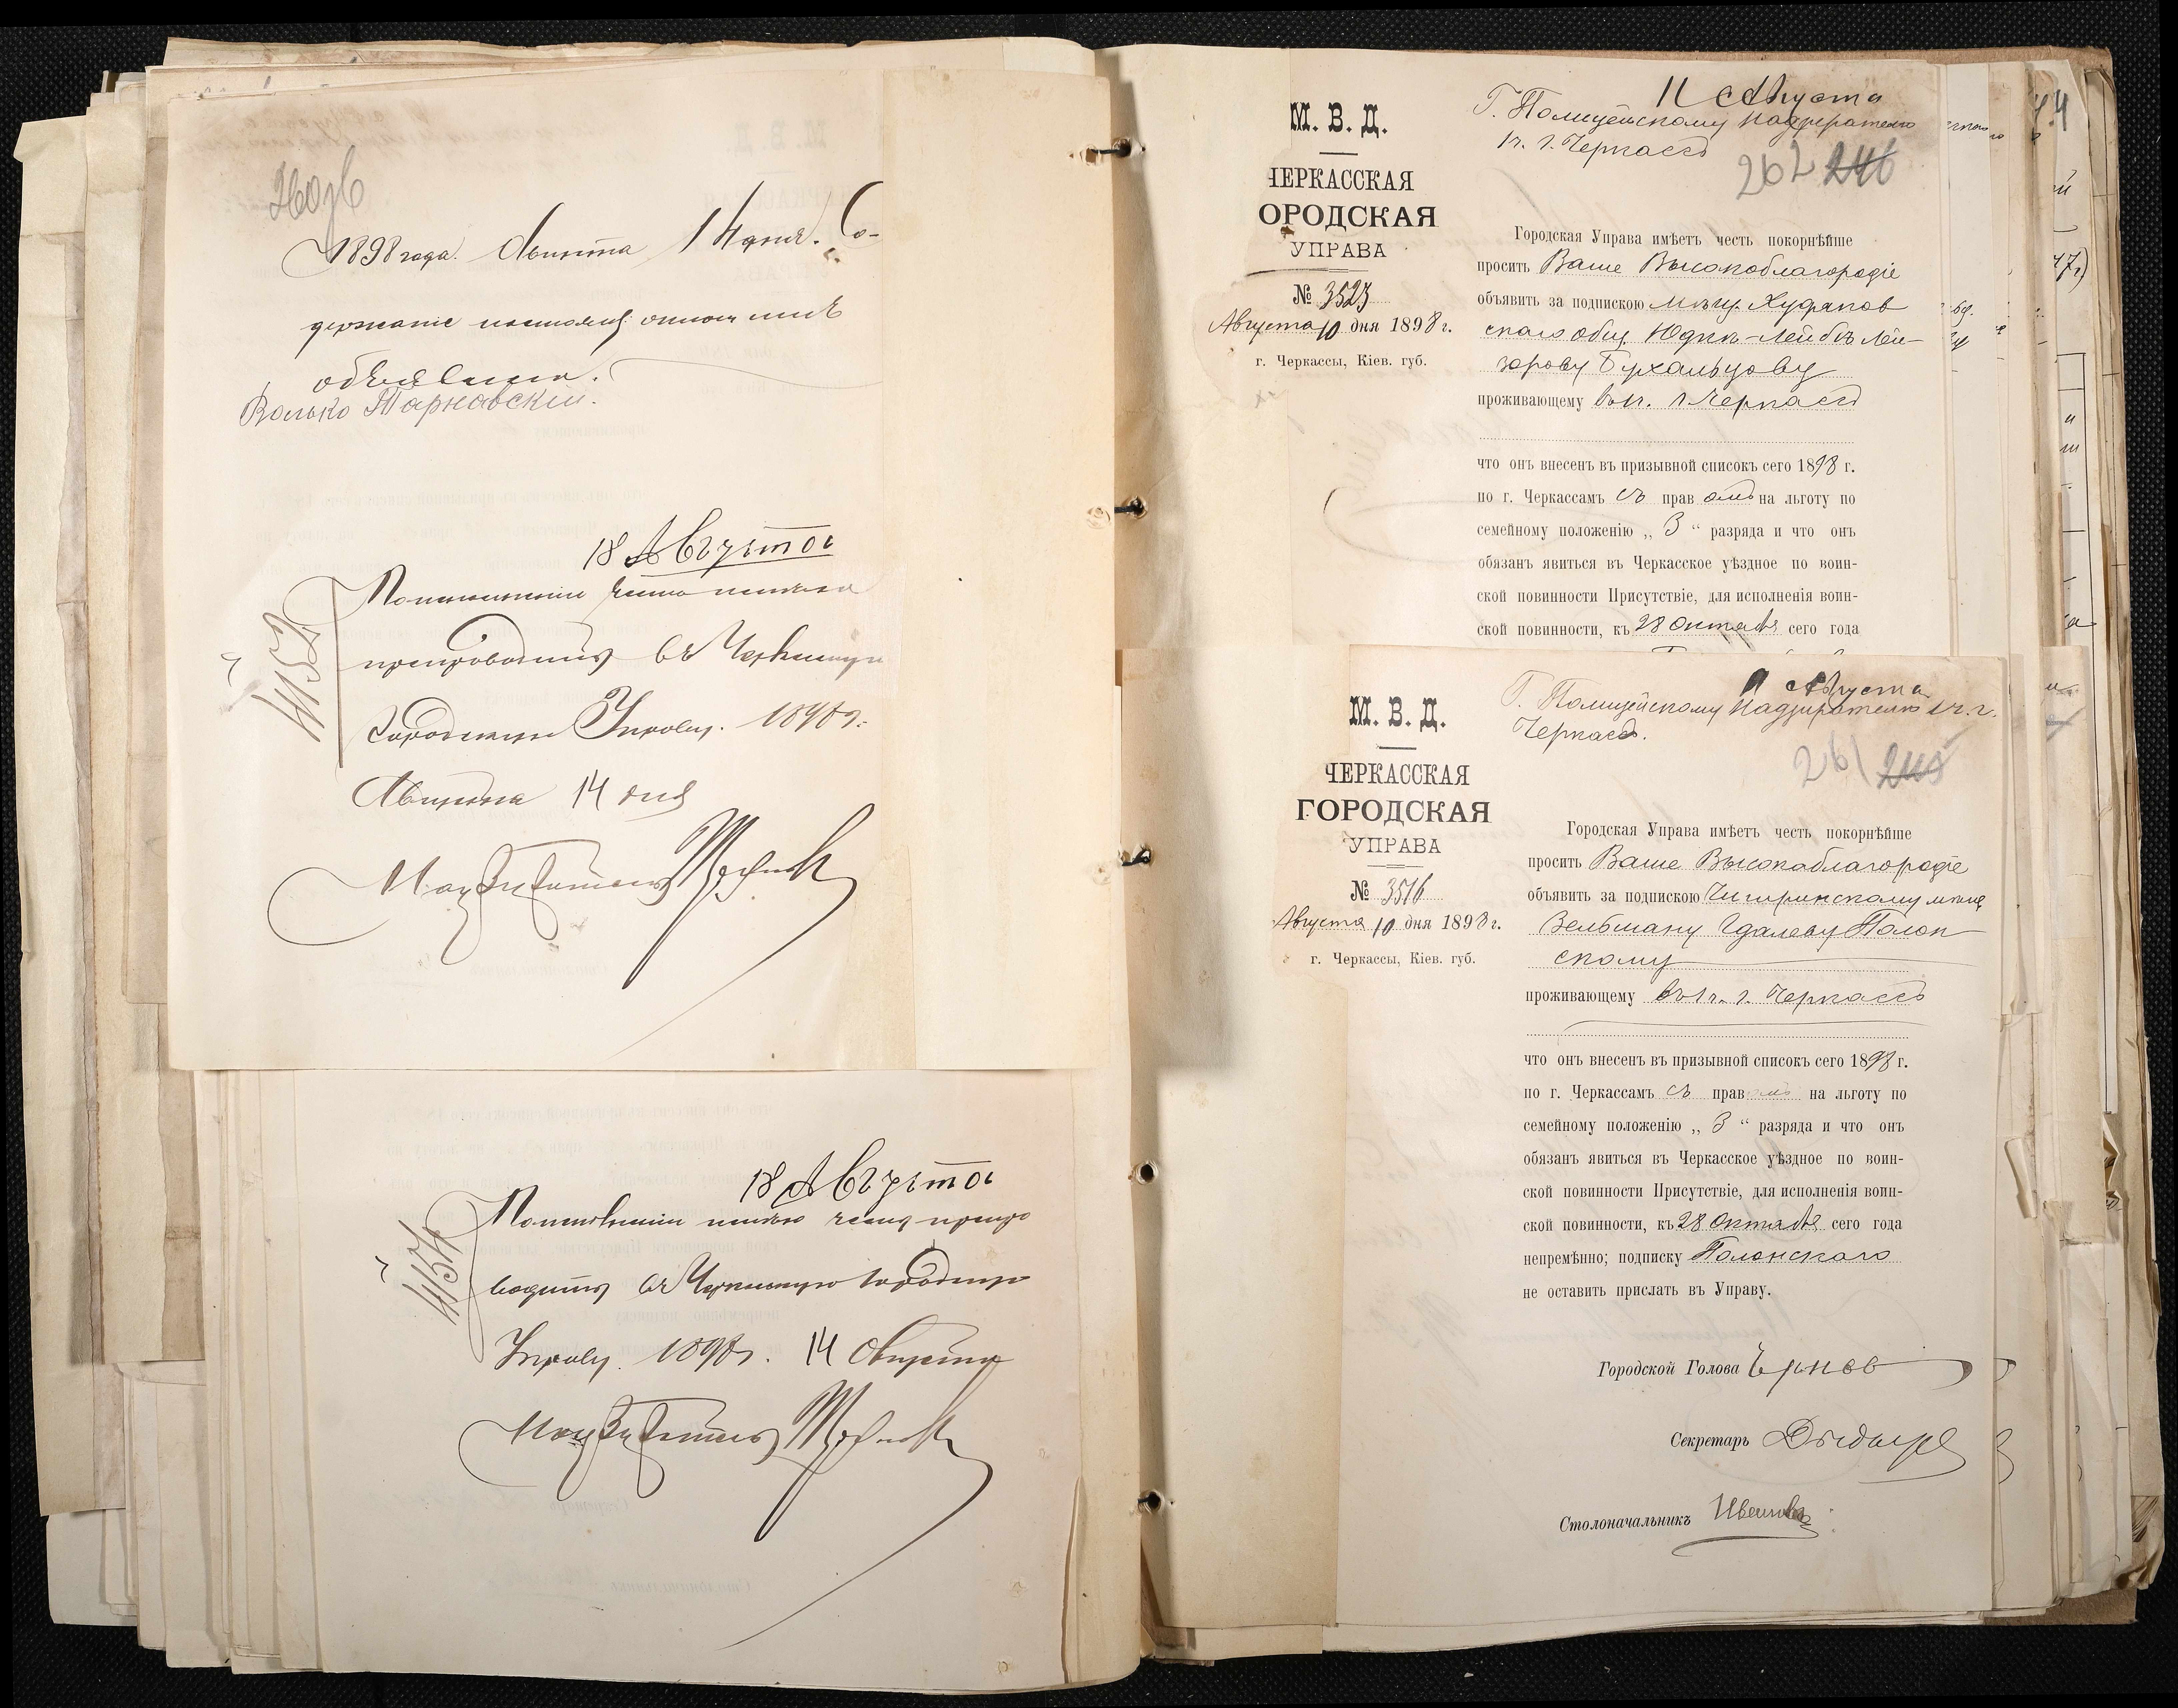 1898 года. Августа 14 дня. Со-
держание настоящ. отнош. мне
объявлено.
Волько Тарнавский.
18 Августа
4152
препроводить въ Черкасскую
Городскую Управу. 1898 г.
Августа 14 дня
18 Августа
4154
водить въ Черкасскую Городскую
Управу. 1898 г. 14 Августа
11 Августа
Г. Полицейскому Надзирателю
1 ч. г. Черкассъ
262 246
М. В. Д.
ЧЕРКАССКАЯ
ОРОДСКАЯ
УПРАВА
№ 3523
Августа 10 дня 1898 г.
г. Черкассы, Кіев. губ.
Городская Управа имѣетъ честь покорнѣйше
просить Ваше Высокоблагородіе
объявить за подпискою мѣщ. Худяков
скаго общ. Юдкѣ-Лейбѣ Лей-
зорову Бухальцову
проживающему въ 1 ч. г. Черкассъ
что онъ внесенъ въ призывной списокъ сего 1898 г.
по г. Черкассамъ съ правомъ на льготу по
семейному положенію „ 3 “ разряда и что онъ
обязанъ явиться въ Черкасское уѣздное по воин-
ской повинности Присутствіе, для исполненія воин-
ской повинности, къ 28 Октября сего года
11 Августа
Г. Полицейскому Надзирателю 1 ч. г.
Черкассъ.
261 245
М. В. Д.
ЧЕРКАССКАЯ
ГОРОДСКАЯ
УПРАВА
№ 3516
Августа 10 дня 1898 г.
г. Черкассы, Кіев. губ.
Городская Управа имѣетъ честь покорнѣйше
просить Ваше Высокоблагородіе
объявить за подпискою Чигиринскому мѣщ.
Вельману Гдалеву Полон
скому
проживающему въ 1 ч. г. Черкассъ
что онъ внесенъ въ призывной списокъ сего 1898 г.
по г. Черкассамъ съ правомъ на льготу по
семейному положенію „ 3 “ разряда и что онъ
обязанъ явиться въ Черкасское уѣздное по воин-
ской повинности Присутствіе, для исполненія воин-
ской повинности, къ 28 Октября сего года
непремѣнно; подписку Полонскаго
не оставить прислать въ Управу.
Городской Голова
Секретарь
Столоначальникъ